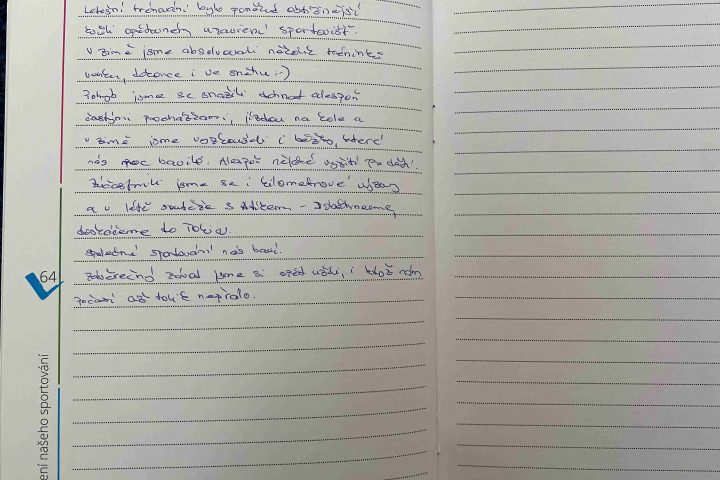 Letošní trénování bylo poněkud obtížnější
kvůli opětovném uzavření sportovišť.
V zimě jsme absolvovali několik tréninků
venku, dokonce i ve sněhu :-)
Pohyb jsme se snažili dohnat alespoň
častými procházkami, jízdou na kole a
v zimě jsme vyzkoušeli i běžky, které
nás moc bavilo. Alespoň nějaké vyžití pro děti.
Zúčastnili jsme se i kilometrové výzvy
a v létě soutěže s - Doběhneme,
doskáčeme do Tokia.
Společné sportování nás baví.
Závěrečný závod jsme si opět užili, i když nám
počasí až tolik nepřálo.
64
ení našeho sportování